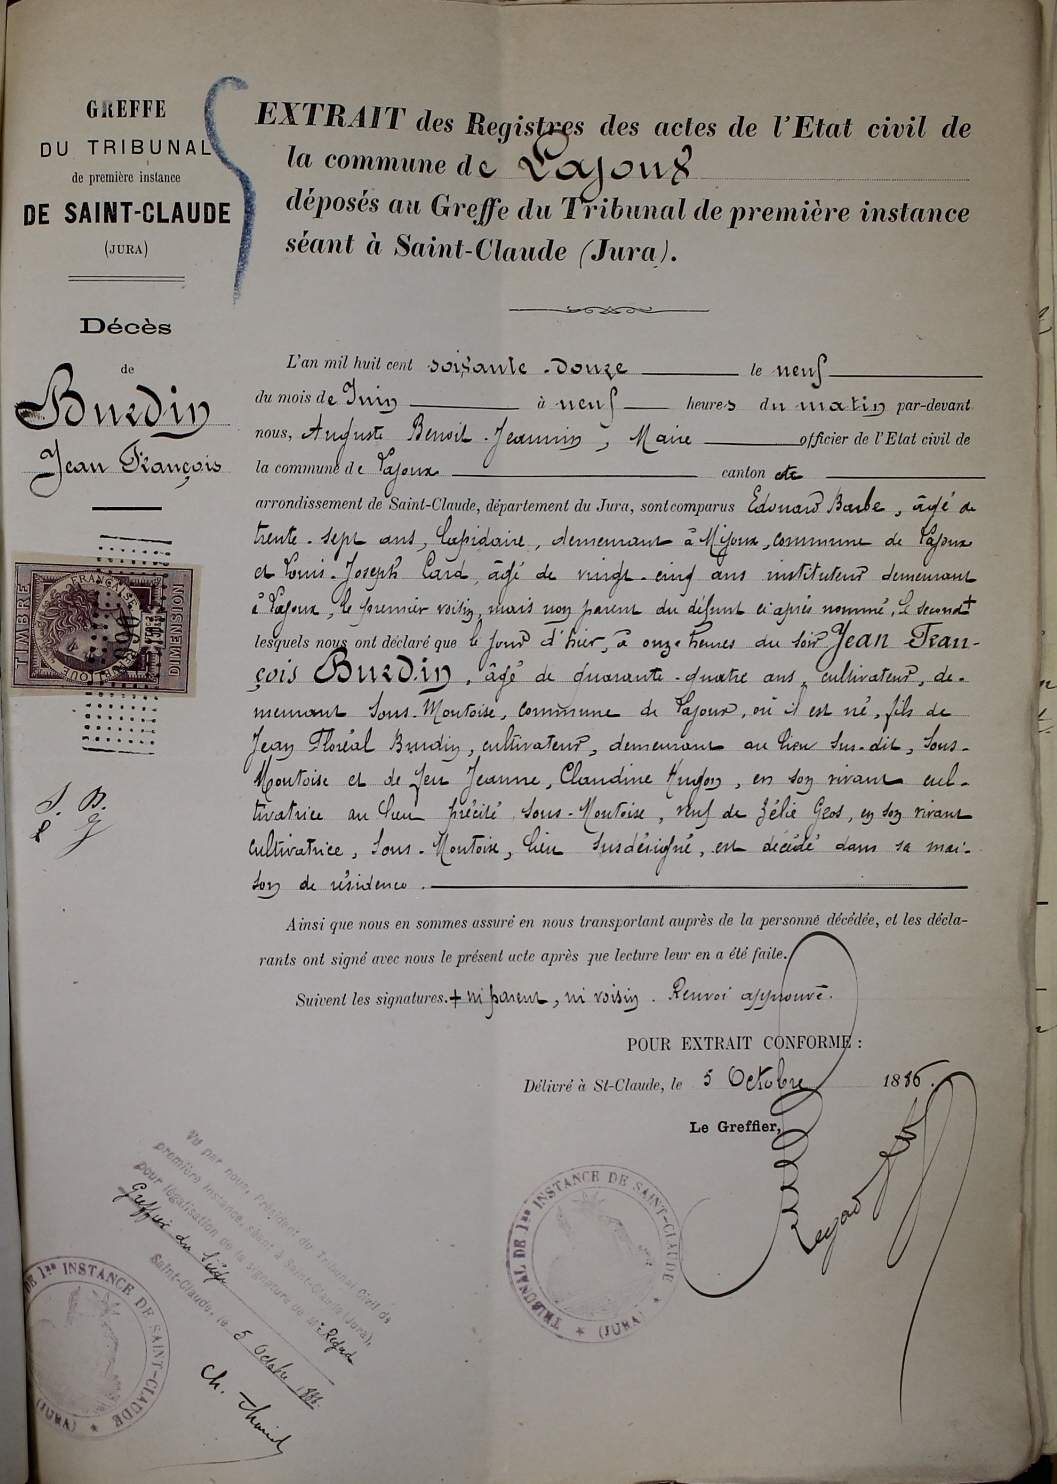 GREFFE
DU TRIBUNAL
de première instance
DE SAINT-CLAUDE
(JURA)
Décès
de
Burdin
Jean François
TIMBRE
DIMENSION
EXTRAIT des Registres des actes de l'Etat civil de
la commune de Lajoux
déposés au Greffe du Tribunal de première instance
séant à Saint-Claude (Jura).
L'an mil huit cent soixante-douze le neuf
du mois de Juin à neuf heures du matin par-devant
nous, Auguste Benoit-Jeannin, Maire officier de l'Etat civil de
la commune de Lajoux canton de
arrondissement de Saint-Claude, département du Jura, sont comparus Edouard Barbe, âgé de
trente-sept ans, lapidaire, demeurant à Mijoux, commune de Lajoux
et Louis-Joseph Card, âgé de vingt-cinq ans instituteur demeurant
à Lajoux, le premier voisin, mais non parent du défunt ci après nommé, le second +
lesquels nous ont déclaré que le jour d'hier, à onze heures du soir Jean Fran-
çois Burdin, âgé de quarante-quatre ans, cultivateur, de-
meurant Sous-Montoise, commune de Lajoux, où il est né, fils de
Jean Floréal Burdin, cultivateur, demeurant au lieu sus-dit, Sous-
Montoise et de feu Jeanne, Claudine Hugon, en son vivant cul-
tivatrice au lieu précité Sous-Montoise, veuf de Zélie Gros, en son vivant
cultivatrice, Sous-Montoise, lieu susdésigné, est décédé dans sa mai-
son de résidence.
Ainsi que nous en sommes assuré en nous transportant auprès de la personne décédée, et les décla-
rants ont signé avec nous le présent acte après que lecture leur en a été faite.
Suivent les signatures. + ni parent, ni voisin. Renvoi approuvé.
POUR EXTRAIT CONFORME :
Délivré à St-Claude, le 5 Octobre 1886.
Le Greffier,
TRIBUNAL DE 1re INSTANCE DE SAINT-CLAUDE
(JURA)
Vu par nous, Président du Tribunal Civil de
première instance, séant à Saint-Claude (Jura),
pour légalisation de la signature de Mr Regad
Greffier du Siège
Saint-Claude, le 5 Octobre 1886
DE 1re INSTANCE DE SAINT-CLAUDE
(JURA)